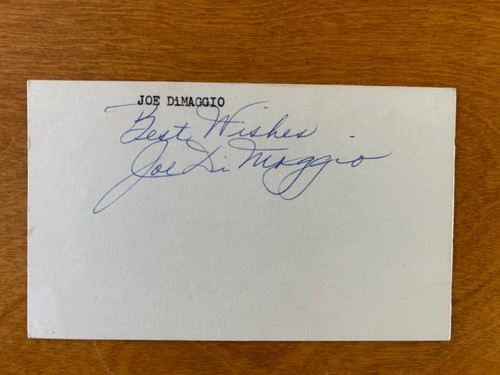 JOE DiMAGGIO
Best Wishes
Joe Di Maggio